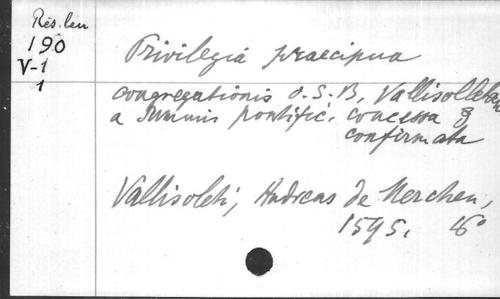 Rés. leu
190
V-1
1
Privilegia praecipua
congregationis O.S.B. Vallisoletan
a Summis pontific. concessa &
confirmata
Vallisoleti, Andreas de Merchen,
1595. 8°